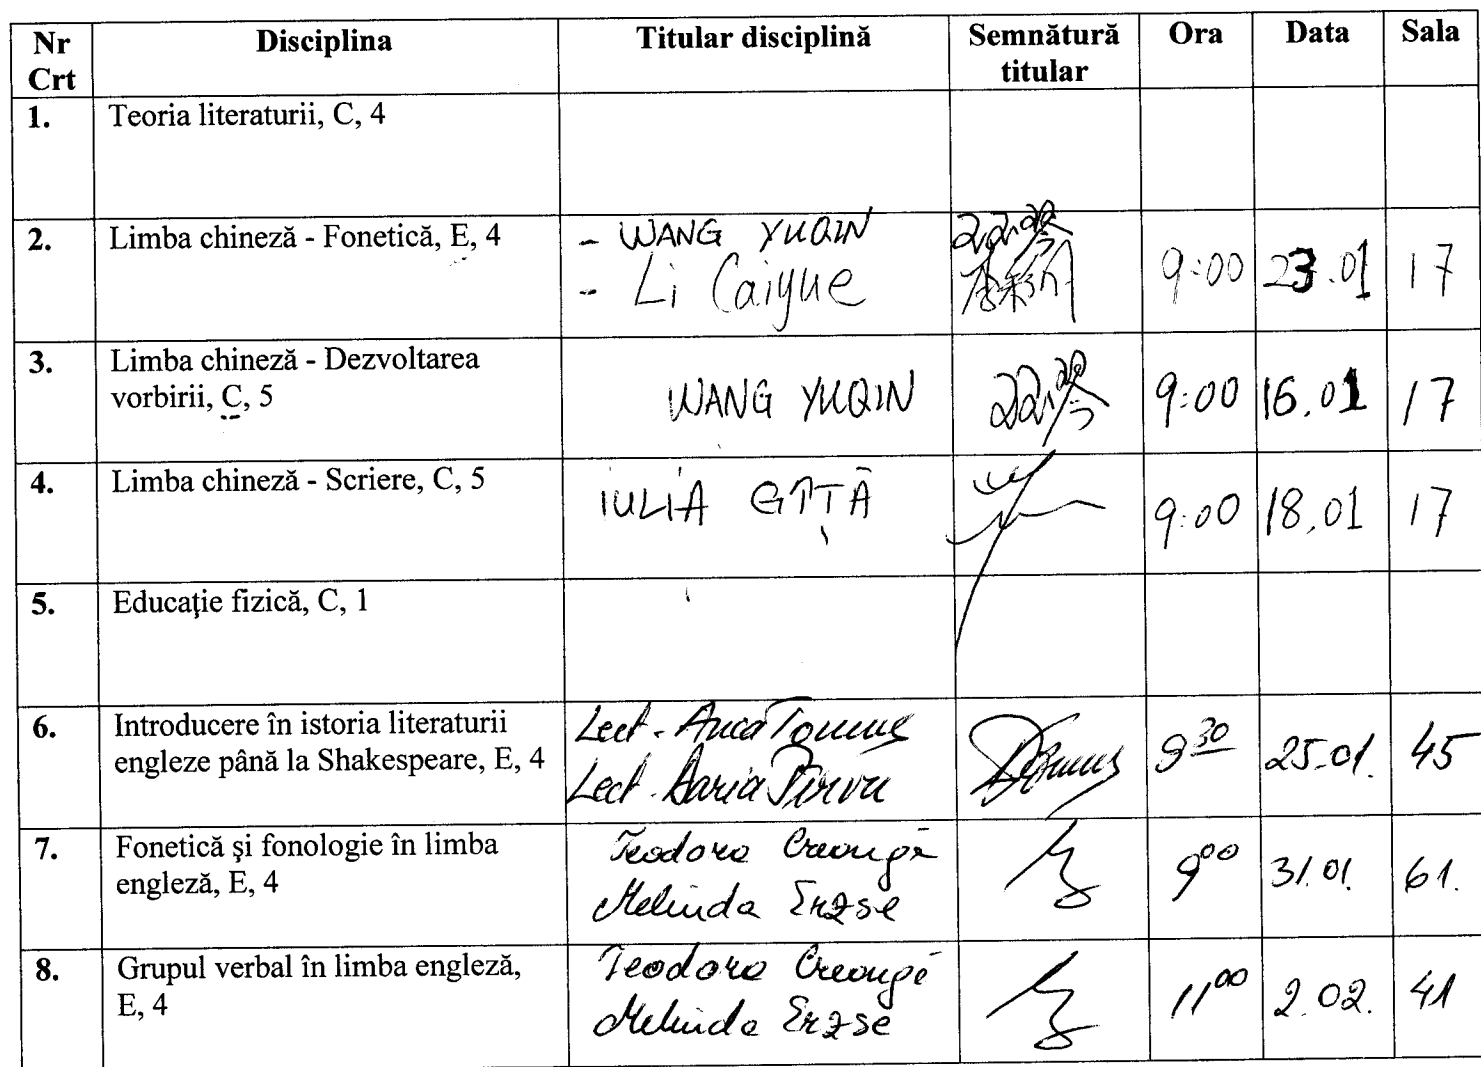 Nr Crt Disciplina Titular disciplină Semnătură titular Ora Data Sala
1. Teoria literaturii, C, 4
2. Limba chineză - Fonetică, E, 4 - WANG YUQIN
- Li Caiyue 9:00 23.01 17
3. Limba chineză - Dezvoltarea
vorbirii, C, 5 WANG YUQIN 9:00 16.01 17
4. Limba chineză - Scriere, C, 5 IULIA GÎȚĂ 9:00 18.01 17
5. Educaţie fizică, C, 1
6. Introducere în istoria literaturii Lect. Anca Tomuș
engleze până la Shakespeare, E, 4 Lect. Daria Pîrvu 9 30 25.01. 45
7. Fonetică şi fonologie în limba Teodora Creangă
engleză, E, 4 Melinda Erzse 9 00 31.01. 61.
8. Grupul verbal în limba engleză, Teodora Creangă
E, 4 Melinda Erzse 11 00 2.02. 41